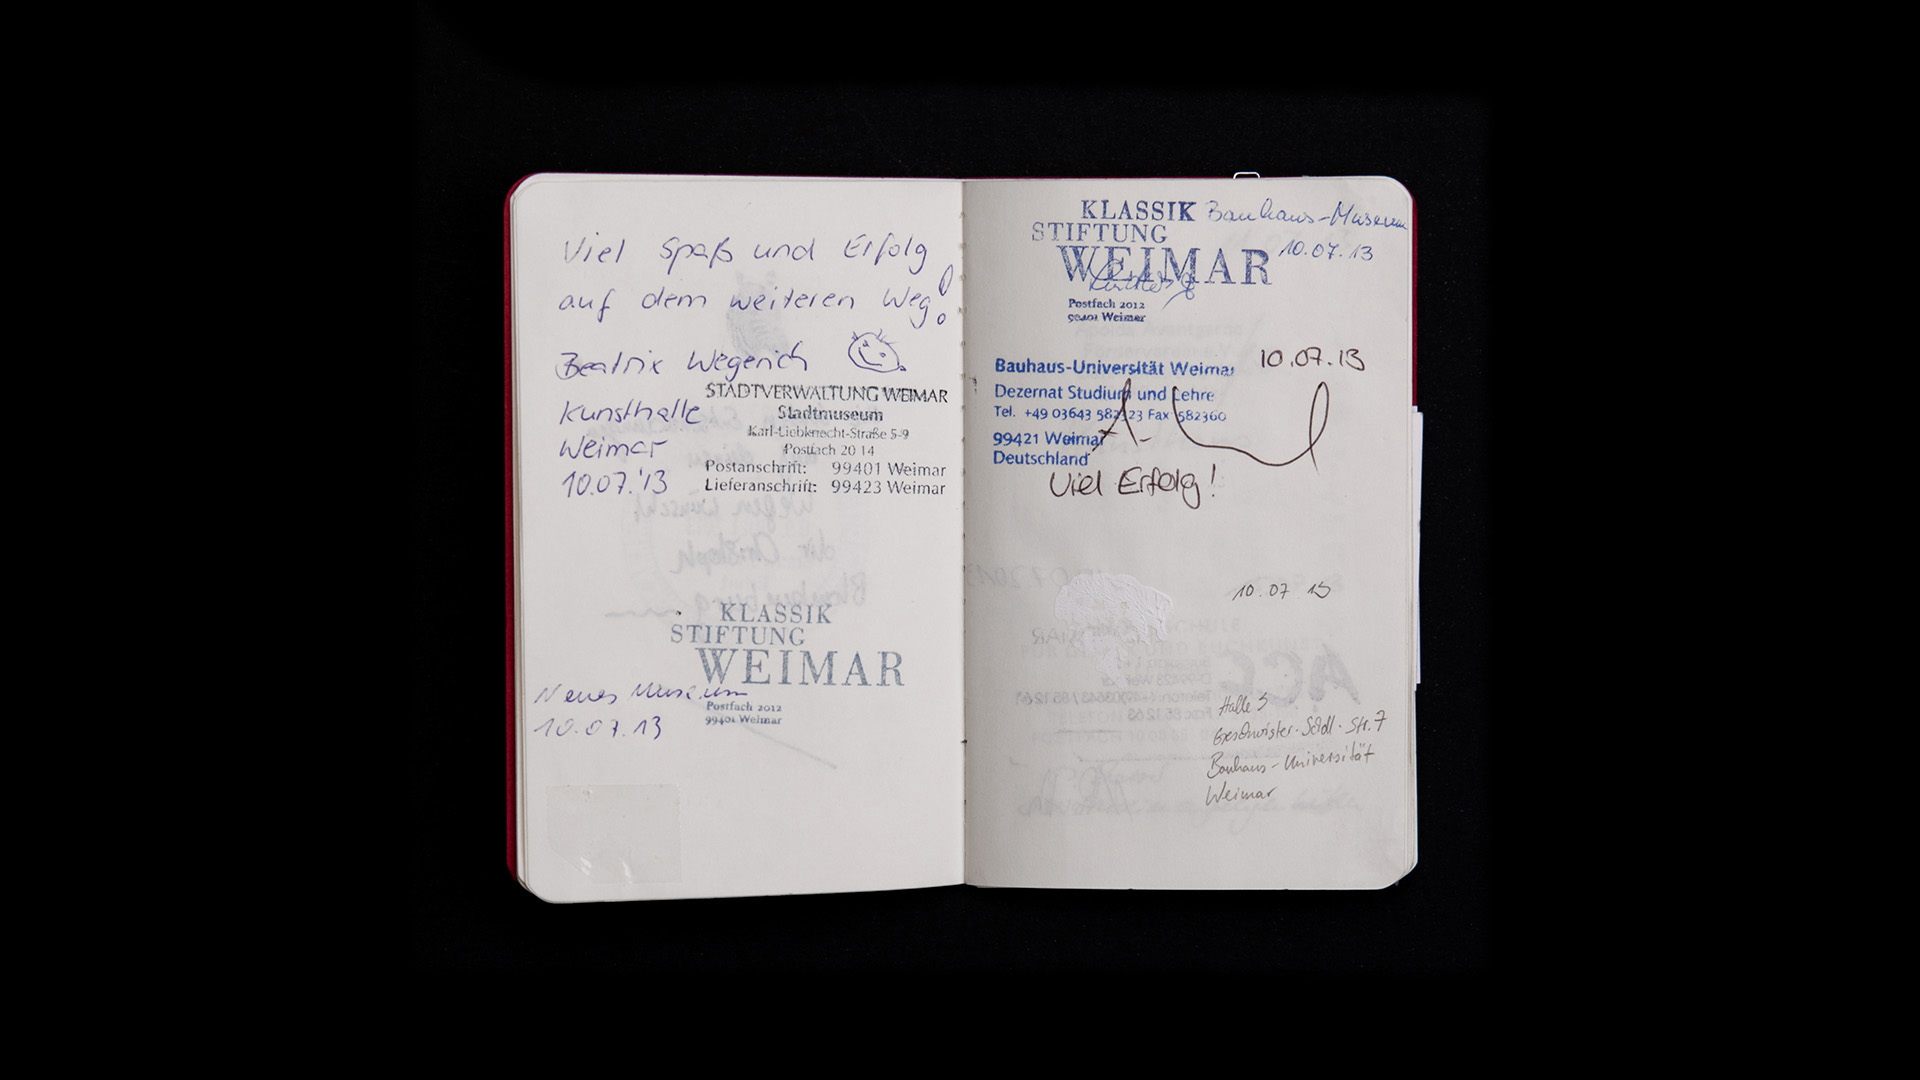 Viel Spaß und Erfolg
auf dem weiteren Weg!
Beatrix Wegerich
Kunsthalle
Weimar
10.07.'13
STADTVERWALTUNG WEIMAR
Stadtmuseum
Karl-Liebknecht-Straße 5-9
Postfach 20 14
Postanschrift: 99401 Weimar
Lieferanschrift: 99423 Weimar
KLASSIK
STIFTUNG
WEIMAR
Postfach 2012
99401 Weimar
Neues Museum
10.07.13
KLASSIK
STIFTUNG
WEIMAR
Postfach 2012
99401 Weimar
Bauhaus-Museum
10.07.13
Bauhaus-Universität Weimar
Dezernat Studium und Lehre
Tel. +49 03643 582323 Fax 582360
99421 Weimar
Deutschland
10.07.13
Viel Erfolg!
10.07 13
Halle
Geschwister-Scholl-Str. 7
Bauhaus-Universität
Weimar